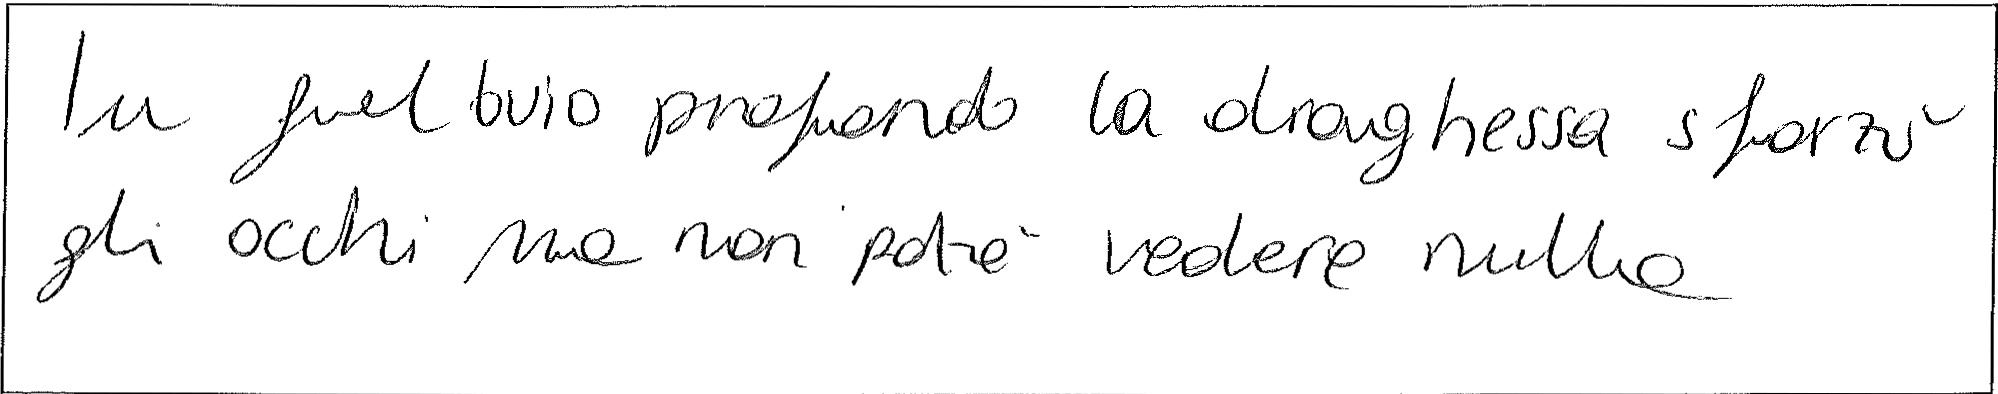 In quel buio profondo la draghessa sforzò
gli occhi ma non potrè vedere nulla